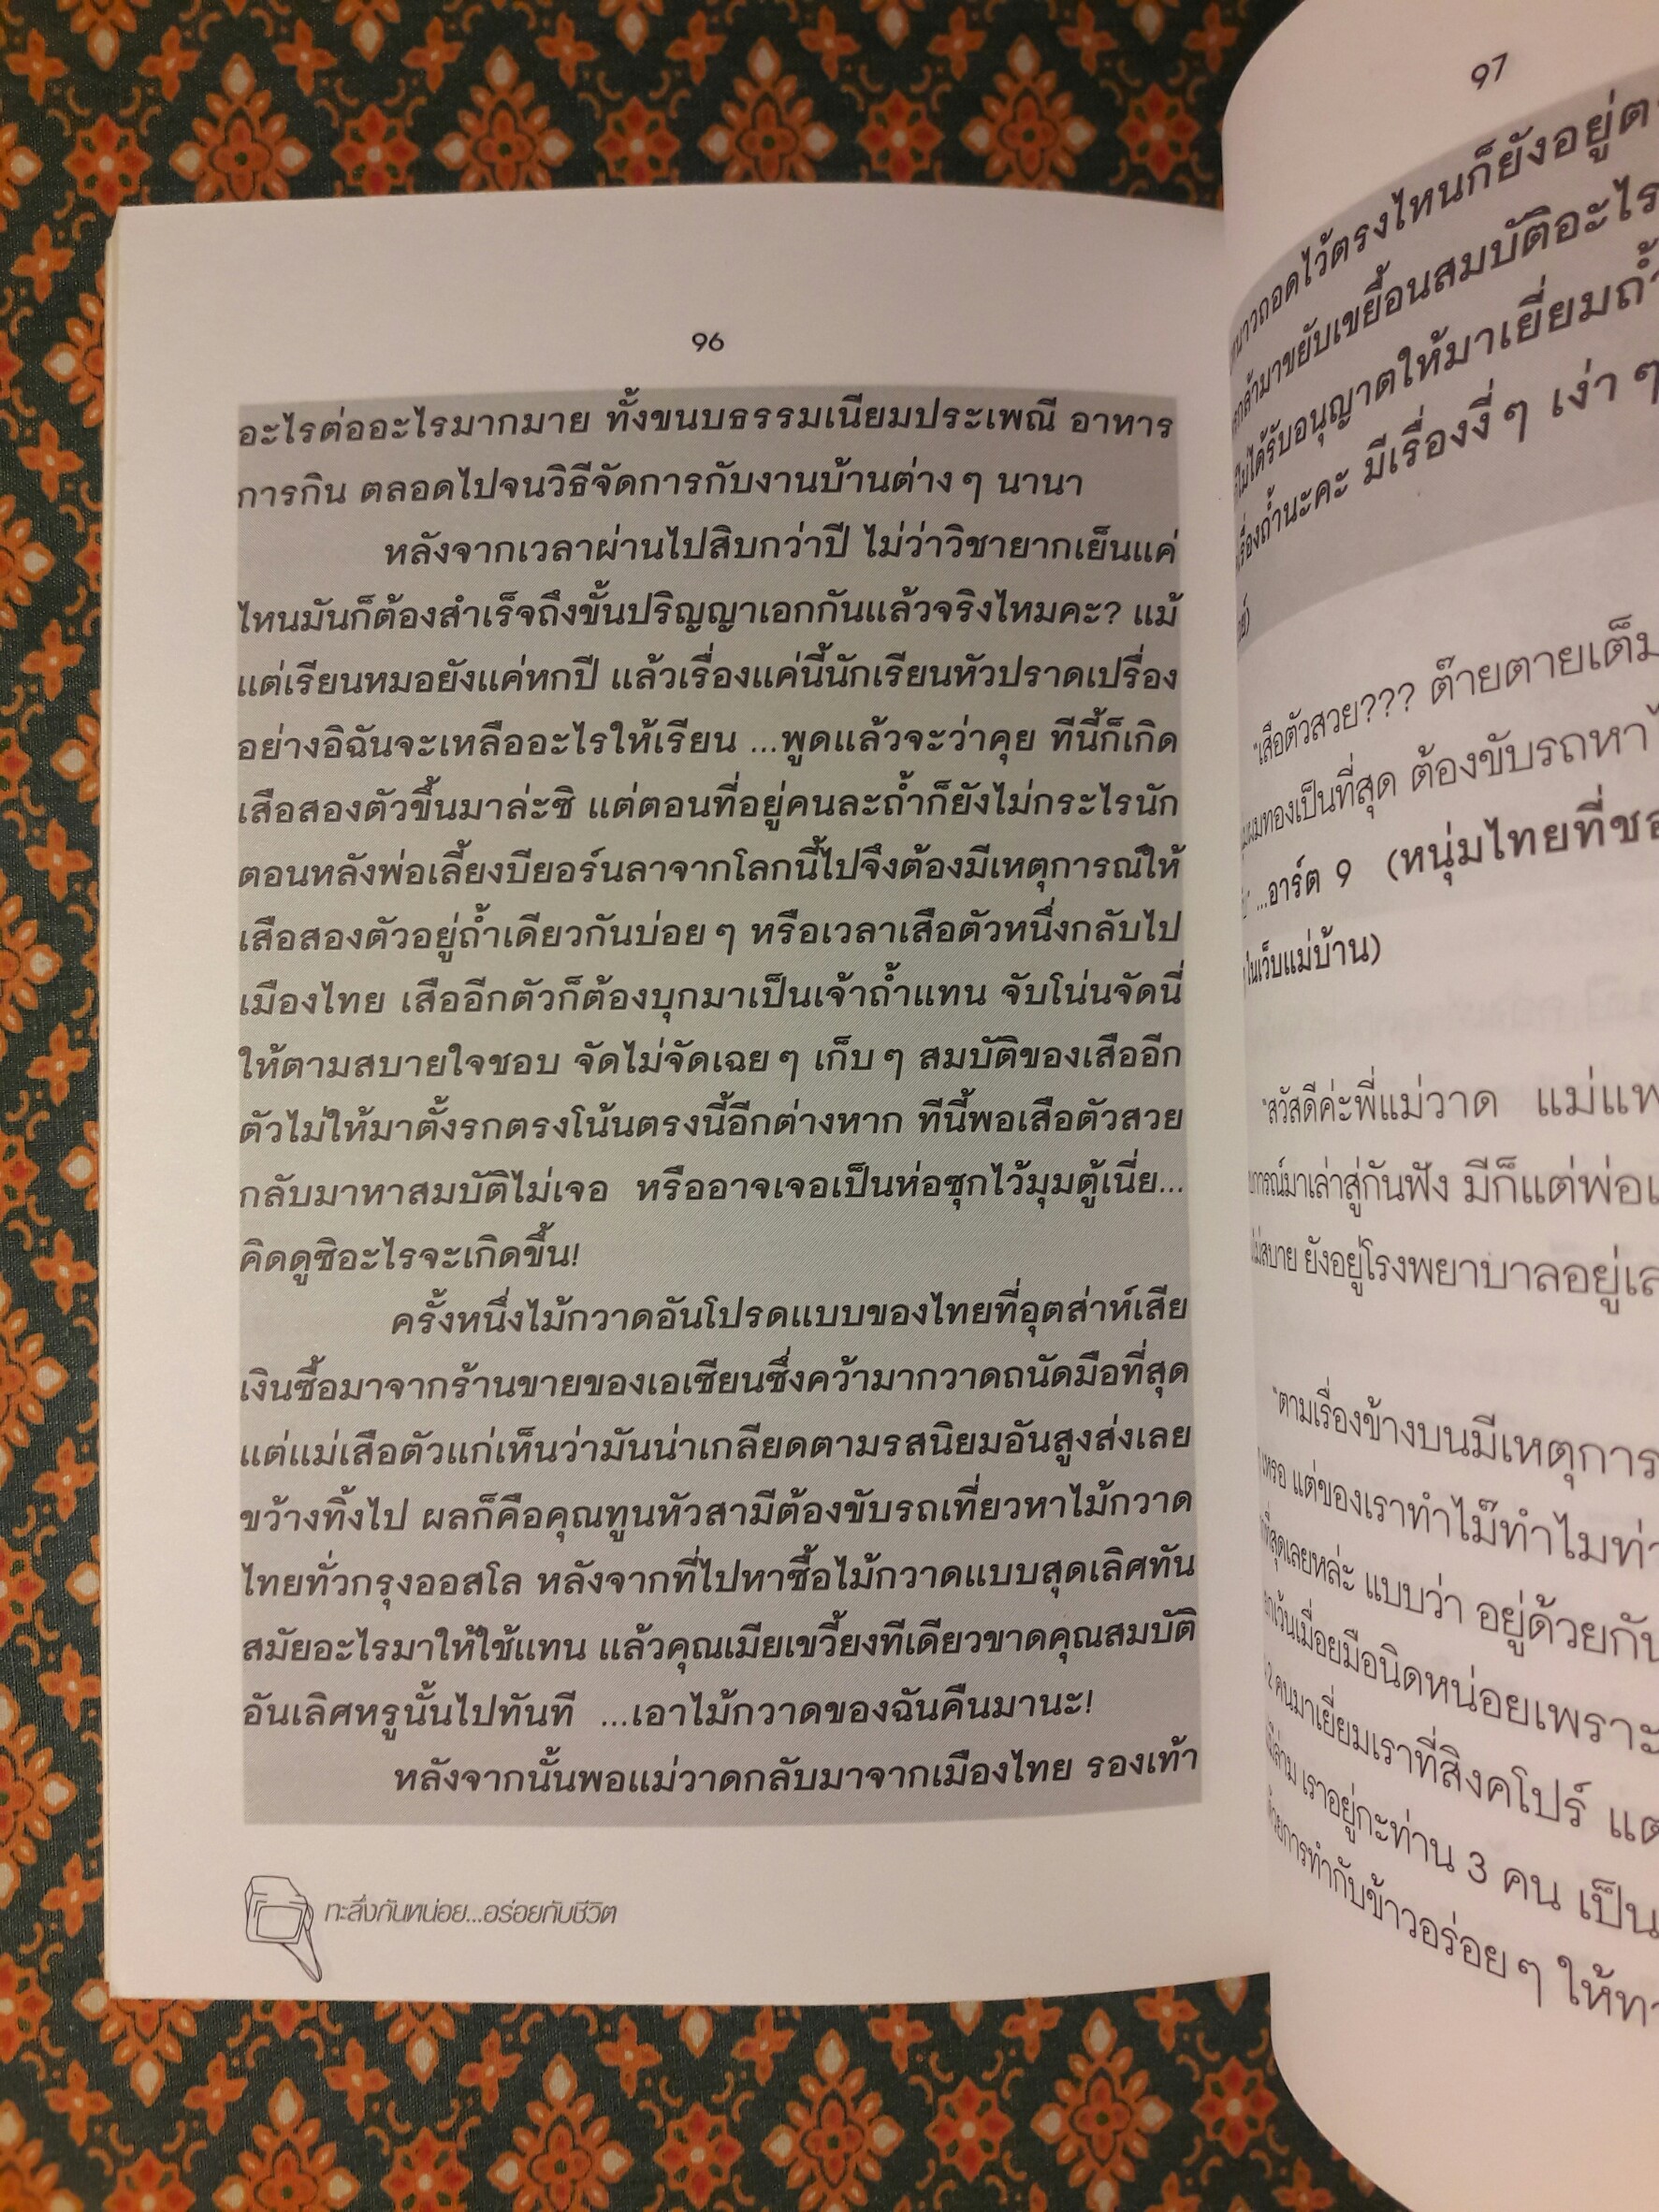 96
อะไรต่ออะไรมากมาย ทั้งขนบธรรมเนียมประเพณี อาหาร
การกิน ตลอดไปจนวิธีจัดการกับงานบ้านต่าง ๆ นานา
หลังจากเวลาผ่านไปสิบกว่าปี ไม่ว่าวิชายากเย็นแค่
ไหนมันก็ต้องสำเร็จถึงขั้นปริญญาเอกกันแล้วจริงไหมคะ? แม้
แต่เรียนหมอยังแค่หกปี แล้วเรื่องแค่นี้นักเรียนหัวปราดเปรื่อง
อย่างอิฉันจะเหลืออะไรให้เรียน ...พูดแล้วจะว่าคุย ทีนี้ก็เกิด
เสือสองตัวขึ้นมาล่ะซิ แต่ตอนที่อยู่คนละถ้ำก็ยังไม่กระไรนัก
ตอนหลังพ่อเลี้ยงบียอร์นลาจากโลกนี้ไปจึงต้องมีเหตุการณ์ให้
เสือสองตัวอยู่ถ้ำเดียวกันบ่อย ๆ หรือเวลาเสือตัวหนึ่งกลับไป
เมืองไทย เสืออีกตัวก็ต้องบุกมาเป็นเจ้าถ้ำแทน จับโน่นจัดนี่
ให้ตามสบายใจชอบ จัดไม่จัดเฉย ๆ เก็บ ๆ สมบัติของเสืออีก
ตัวไม่ให้มาตั้งรกตรงโน้นตรงนี้อีกต่างหาก ทีนี้พอเสือตัวสวย
กลับมาหาสมบัติไม่เจอ หรืออาจเจอเป็นห่อซุกไว้มุมตู้เนี่ย...
คิดดูซิอะไรจะเกิดขึ้น!
ครั้งหนึ่งไม้กวาดอันโปรดแบบของไทยที่อุตส่าห์เสีย
เงินซื้อมาจากร้านขายของเอเชียนซึ่งคว้ามากวาดถนัดมือที่สุด
แต่แม่เสือตัวแก่เห็นว่ามันน่าเกลียดตามรสนิยมอันสูงส่งเลย
ขว้างทิ้งไป ผลก็คือคุณทูนหัวสามีต้องขับรถเที่ยวหาไม้กวาด
ไทยทั่วกรุงออสโล หลังจากที่ไปหาซื้อไม้กวาดแบบสุดเลิศทัน
สมัยอะไรมาให้ใช้แทน แล้วคุณเมียเขวี้ยงทีเดียวขาดคุณสมบัติ
อันเลิศหรูนั้นไปทันที ...เอาไม้กวาดของฉันคืนมานะ!
หลังจากนั้นพอแม่วาดกลับมาจากเมืองไทย รองเท้า
ทะลึ่งกันหน่อย...อร่อยกับชีวิต
97
ถอดไว้ตรงไหนก็ยังอยู่
มาขยับเขยื้อนสมบัติอะไร
ไม่ได้รับอนุญาตให้มาเยี่ยม
ถ้ำนะคะ มีเรื่องงี่ ๆ เง่า ๆ
"เสือตัวสวย??? ต๊ายตายเต็ม
ผมทองเป็นที่สุด ต้องขับรถหา
...อาร์ต 9 (หนุ่มไทยที่
ในเว็บแม่บ้าน)
"สวัสดีค่ะพี่แม่วาด
มาเล่าสู่กันฟัง มีก็แต่พ่อ
ไม่สบาย ยังอยู่โรงพยาบาลอยู่
"ตามเรื่องข้างบนมี
เหรอ แต่ของเราทำไม๊ทำไม
ที่สุดเลยหล่ะ แบบว่า อยู่ด้วย
เมื่อยมือนิดหน่อยเพราะ
2 คนมาเยี่ยมเราที่สิงคโปร์
เราอยู่กะท่าน 3 คน เป็น
ด้วยการทำกับข้าวอร่อย ๆ ให้